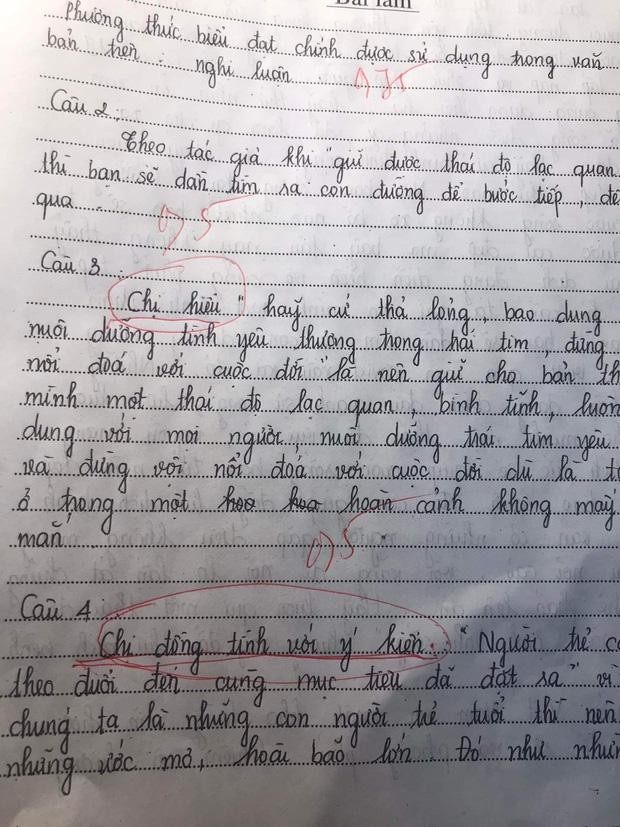 Bài làm
Phương thức biểu đạt chính được sử dụng trong văn
bản trên : nghị luận
0,75
Câu 2 :
Theo tác giả khi "giữ được thái độ lạc quan
thì bạn sẽ dần tìm ra con đường để bước tiếp, để
qua
0,5
Câu 3 :
Chị hiểu " hãy cứ thả lỏng, bao dung
nuôi dưỡng tình yêu thương trong trái tim, đừng
nổi đoá với cuộc đời" là nên giữ cho bản th
mình một thái độ lạc quan, bình tĩnh, luôn
dung với mọi người nuôi dưỡng trái tim yêu
và đừng vội nổi đoá với cuộc đời dù là t
ở trong một hoa hoa hoàn cảnh không may
mắn
0,5
Câu 4 :
Chị đồng tình với ý kiến : " Người trẻ c
theo đuổi đến cùng mục tiêu đã đặt ra" vì
chúng ta là những con người trẻ tuổi thì nên
những ước mơ, hoài bão lớn. Đó như nhữn